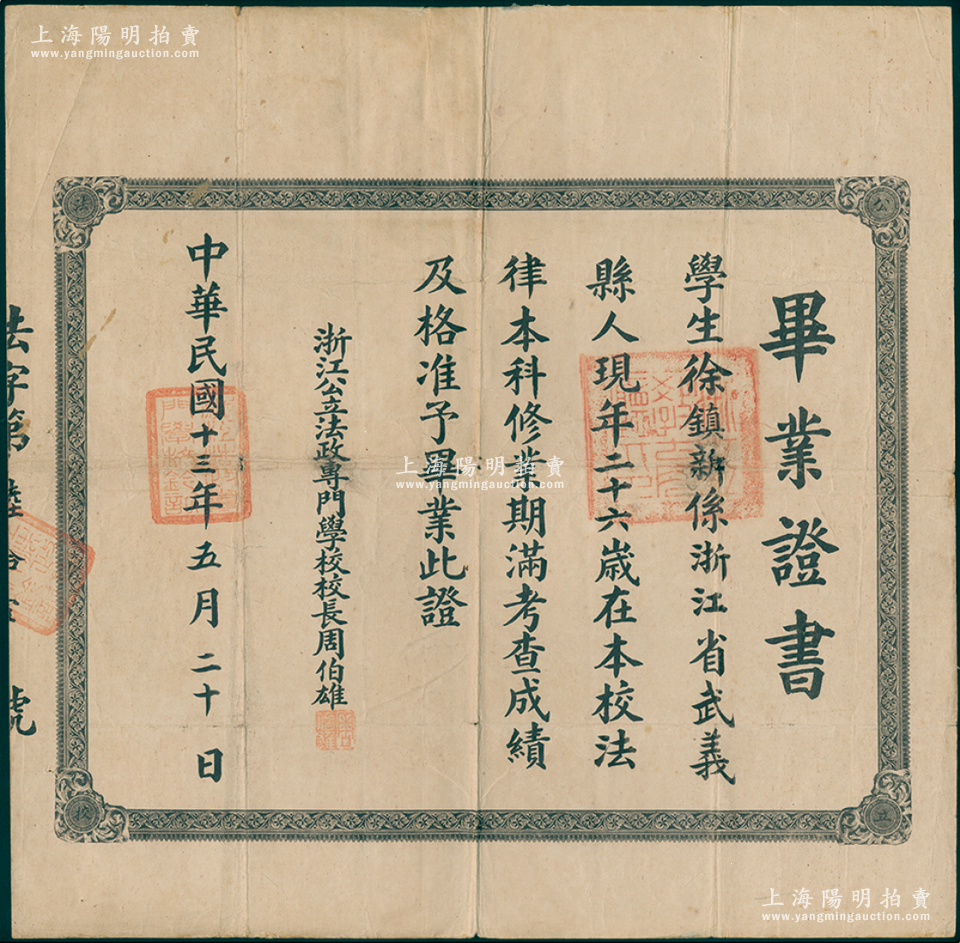 上海陽明拍賣
www.yangmingauction.com
畢業證書
學生徐鎮新係浙江省武義
縣人現年二十六歲在本校法
律本科修業期滿考查成績
及格准予畢業此證
浙江公立法政專門學校校長周伯雄
中華民國十三年五月二十日
法字第陸拾號
公
立
法
校
上海陽明拍賣
www.yangmingauction.com
上海陽明拍賣
www.yangmingauction.com